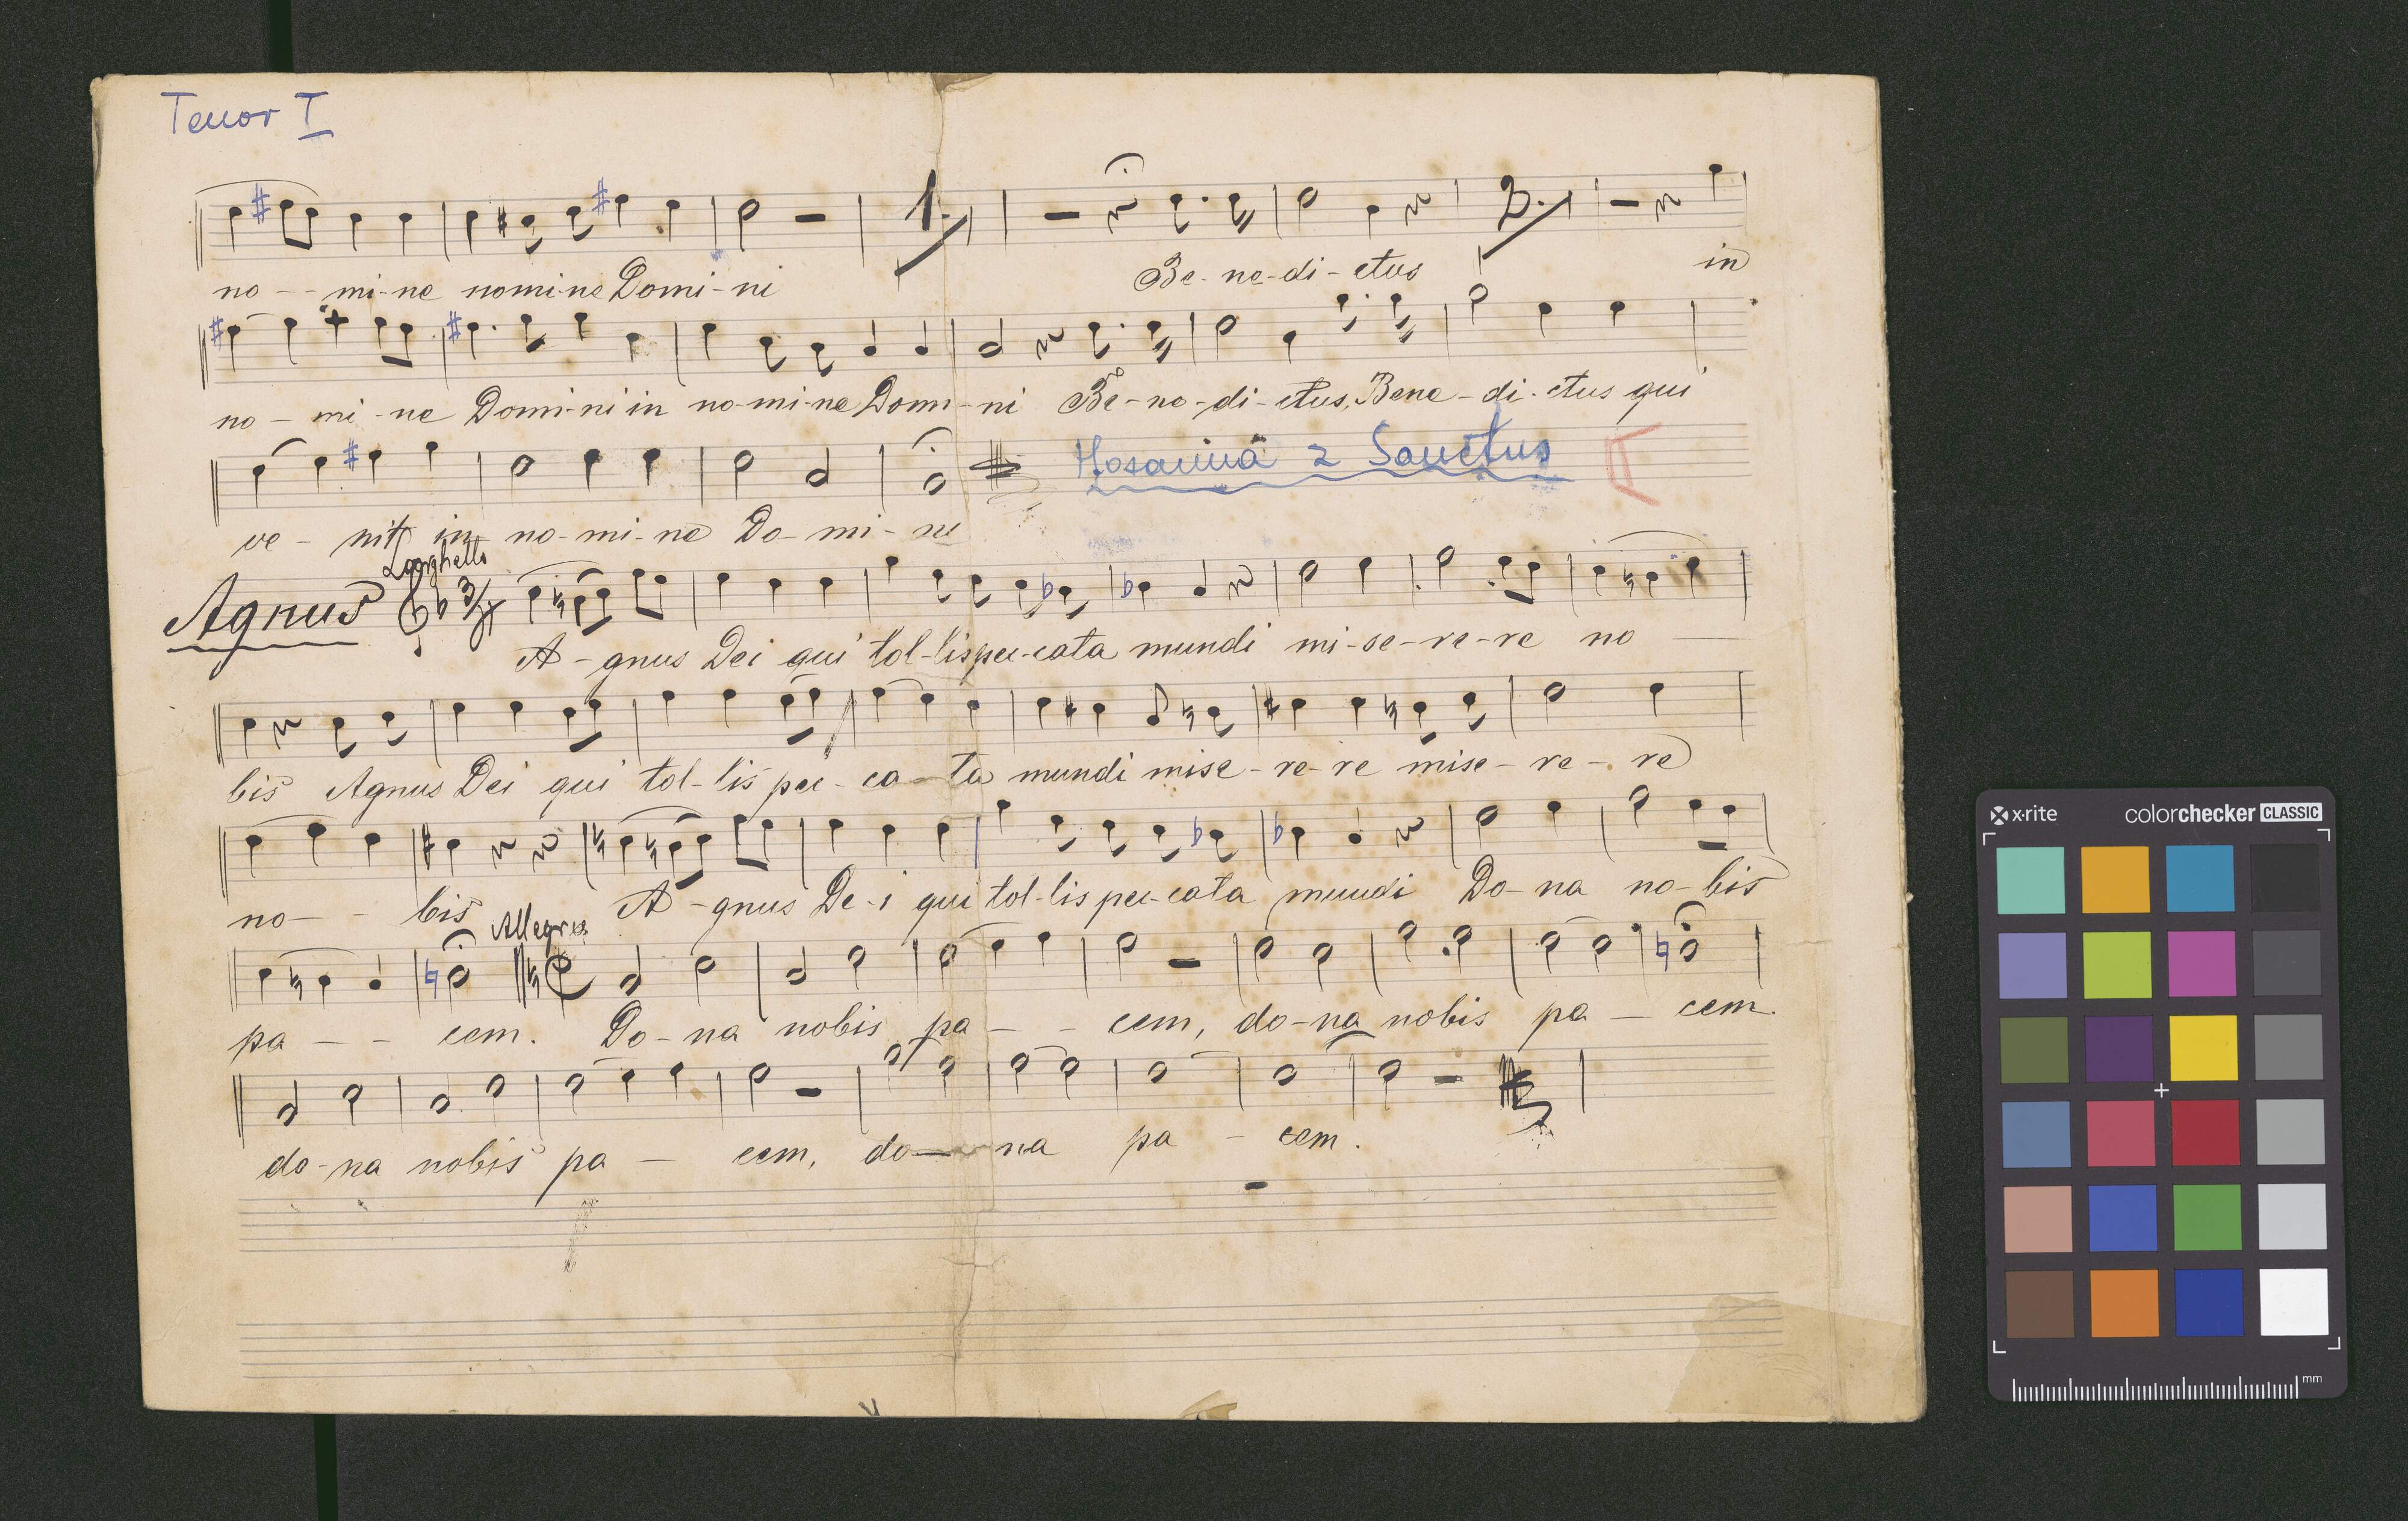 Tenor I
1.
no - - mi-ne nomine Domi-ni Be-ne-di-ctus in
2.
no - mi-ne Domi-ni in no-mi-ne Domi-ni Be-ne-di-ctus, Bene-di-ctus qui
Hosanna z Sanctus
ve - nit in no-mi-ne Do-mi-ni
Larghetto
Agnus 3/4
A-gnus Dei qui tol-lis pec-cata mundi mi-se-re-re no
bis Agnus Dei qui tol-lis pec-ca-ta mundi mise-re-re mise-re-re
no - - bis A-gnus De-i qui tol-lis pec-cata mundi Do-na no-bis
Allegro
pa - - cem. Do-na nobis pa - - cem, do-na nobis pa - cem.
do-na nobis pa - cem, do - na pa - cem.
x·rite colorchecker CLASSIC
mm